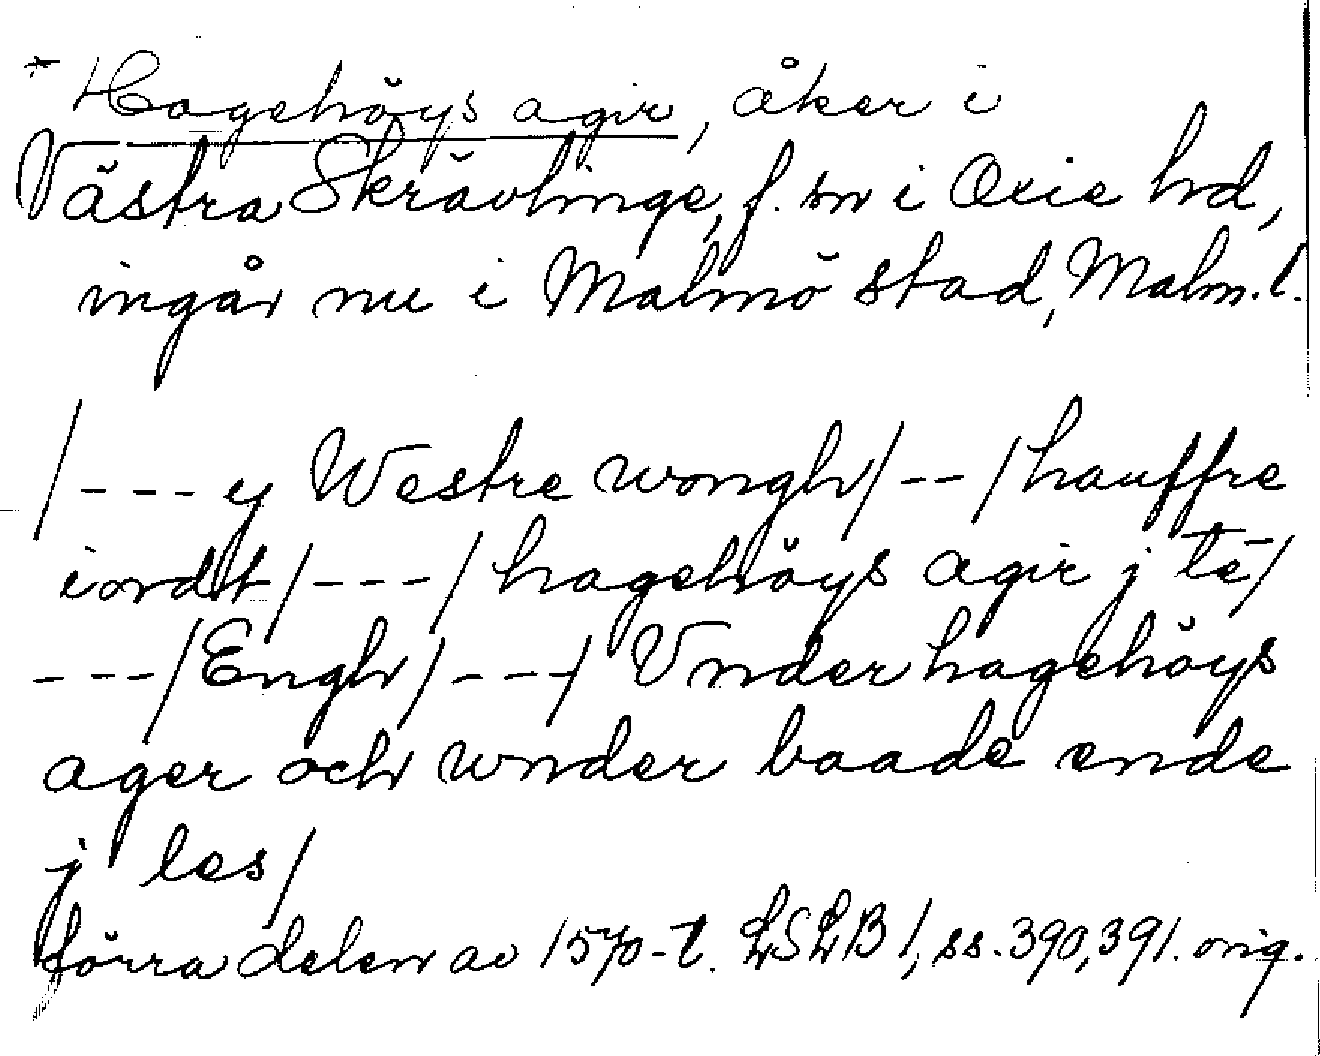 * Hagehöys agir, åker i
Västra Skrävlinge, f. sn i Oxie hd,
ingår nu i Malmö stad, Malm. l.
/--- ej Westre wongh/--/hauffre
iordt/---/hagehöys agir j tē/
---/Engh/---/ Vnder hagehöys
ager och wnder baade ende
j les/
förra delen av 1570-t. LSLB 1, ss. 390, 391. orig.